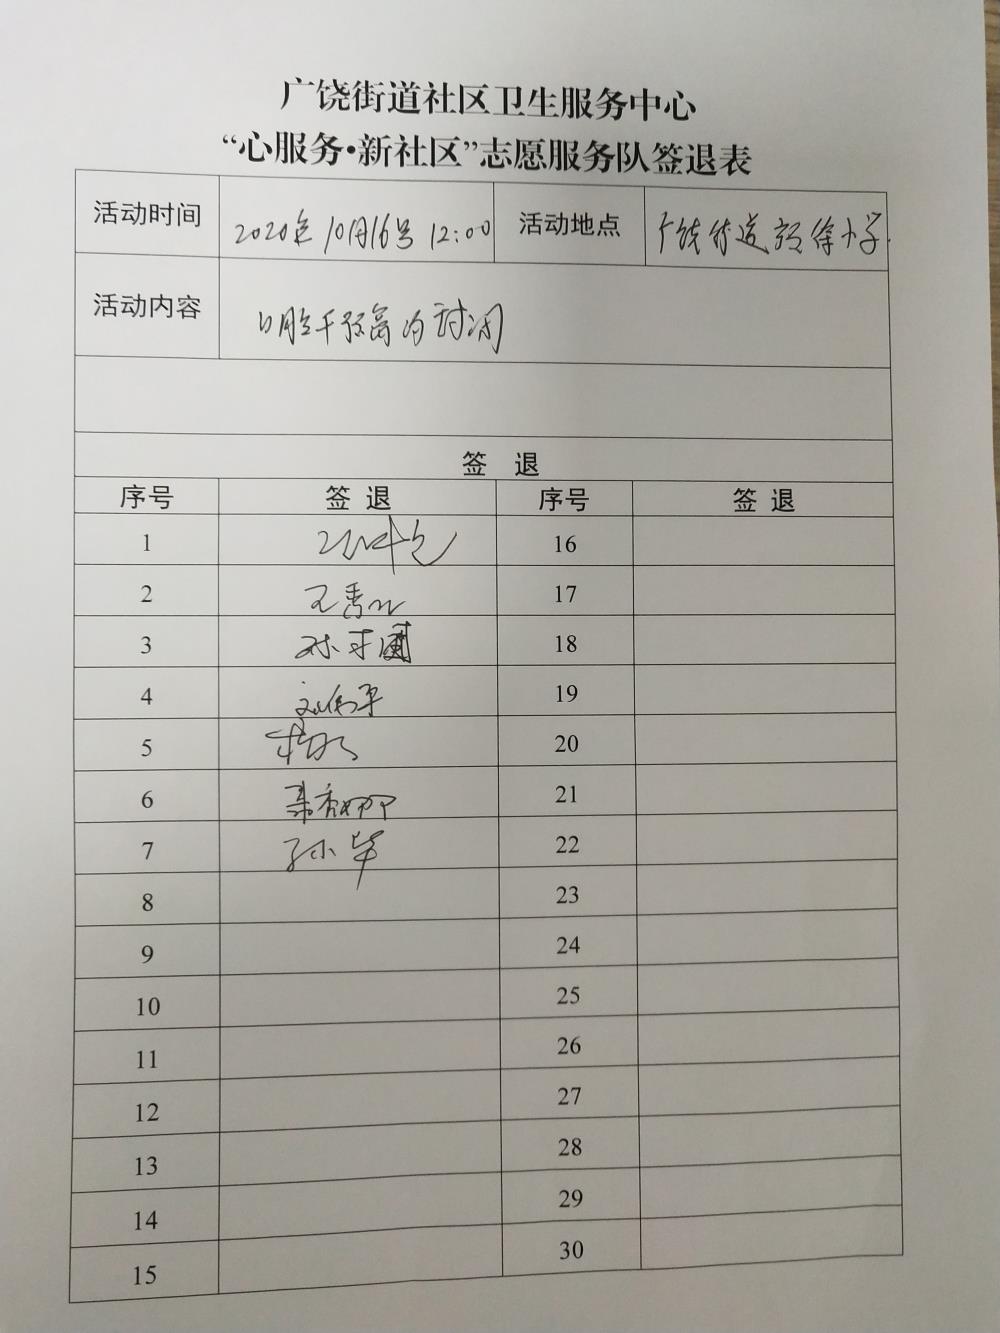 广饶街道社区卫生服务中心
“心服务•新社区”志愿服务队签退表
活动时间 2020年10月16号 12:00 活动地点 广饶街道 颜徐小学
活动内容 口腔干预窝沟封闭
签 退
序号 签 退 序号 签 退
1 16
2 王秀 17
3 孙 18
4 刘伟平 19
5 20
6 香娜 21
7 孙华 22
8 23
9 24
10 25
11 26
12 27
13 28
14 29
15 30